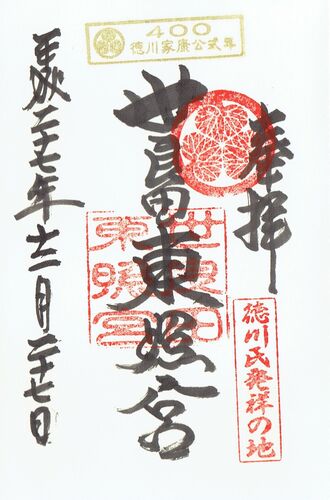 400
徳川家康公式年
奉拝
世良田東照宮
世良田東照宮
徳川氏発祥の地
平成二十七年十二月二十七日